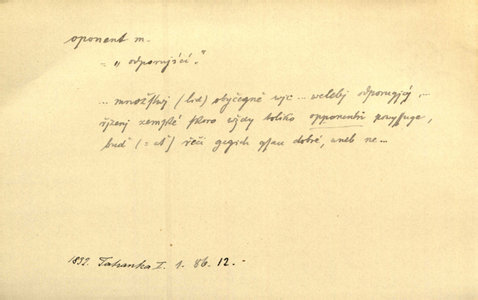 oponent m.
= „odporující."
... množstwj (lid) obyčegně wjc ... welebj odporugjcý ...
řjzenj zemské skoro wždy toliko opponenti powyssuge,
buď (= ať) řeči gegich gsau dobré, aneb ne ...
1832. Tatranka I. 1. 86. 12. -